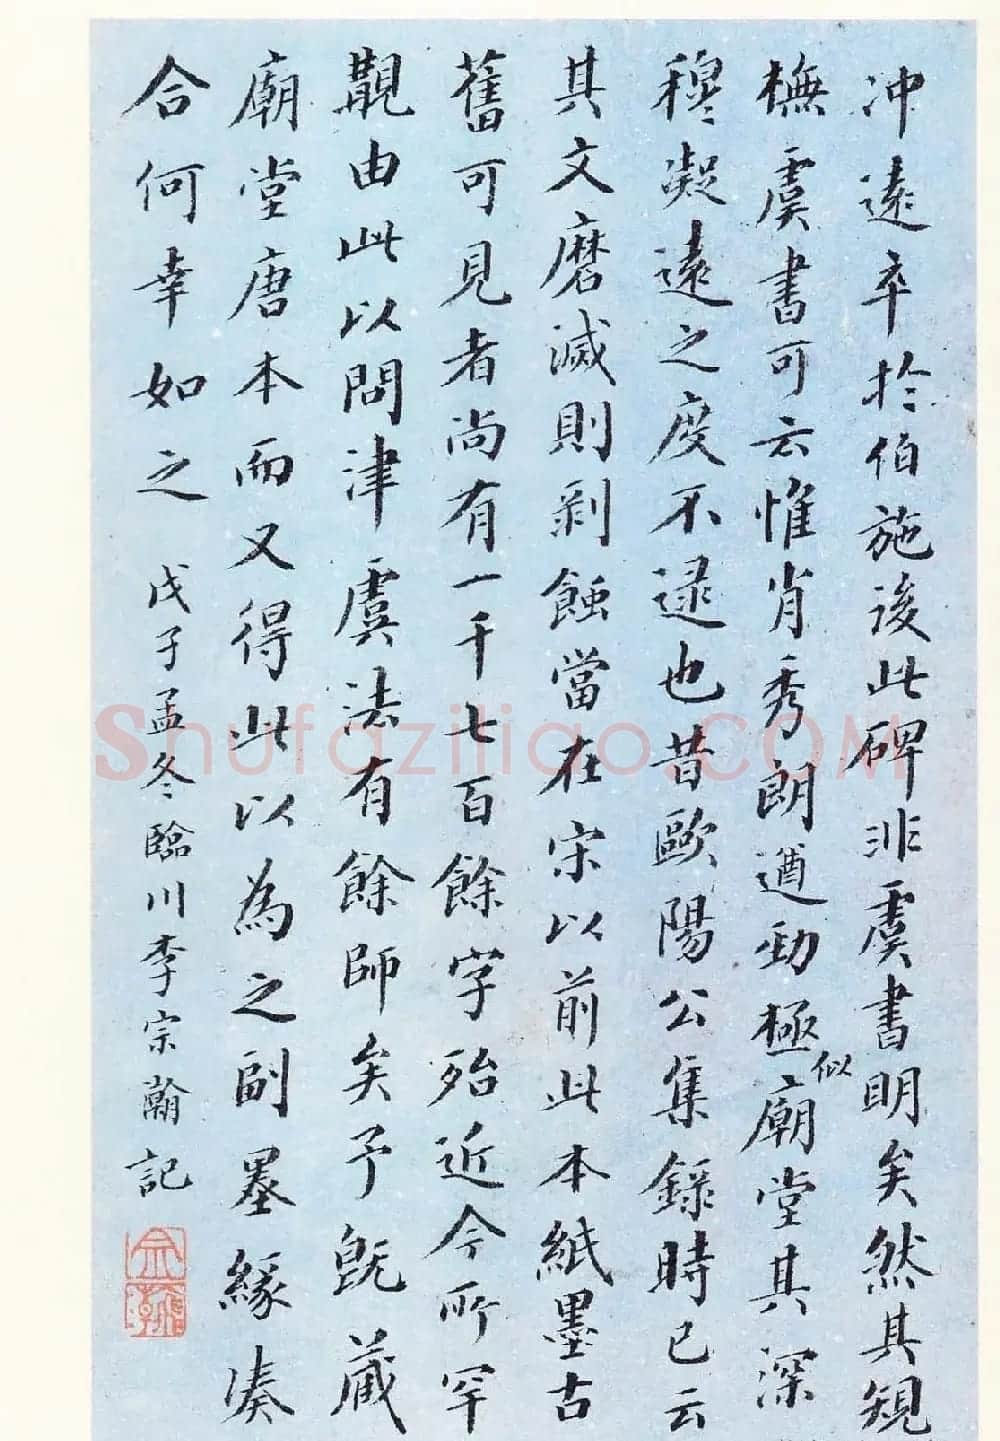 冲遠卒於伯施後此碑非虞書明矣然其規
橅虞書可云惟肖秀朗遒勁極似廟堂其深
穆凝遠之度不逮也昔歐陽公集錄時已云
其文磨滅則剥蝕當在宋以前此本紙墨古
舊可見者尚有一千七百餘字殆近今所罕
覯由此以問津虞法有餘師矣予旣藏
廟堂唐本而又得此以為之副墨緣湊
合何幸如之
戊子孟冬臨川李宗瀚記
Shufaziliao.COM